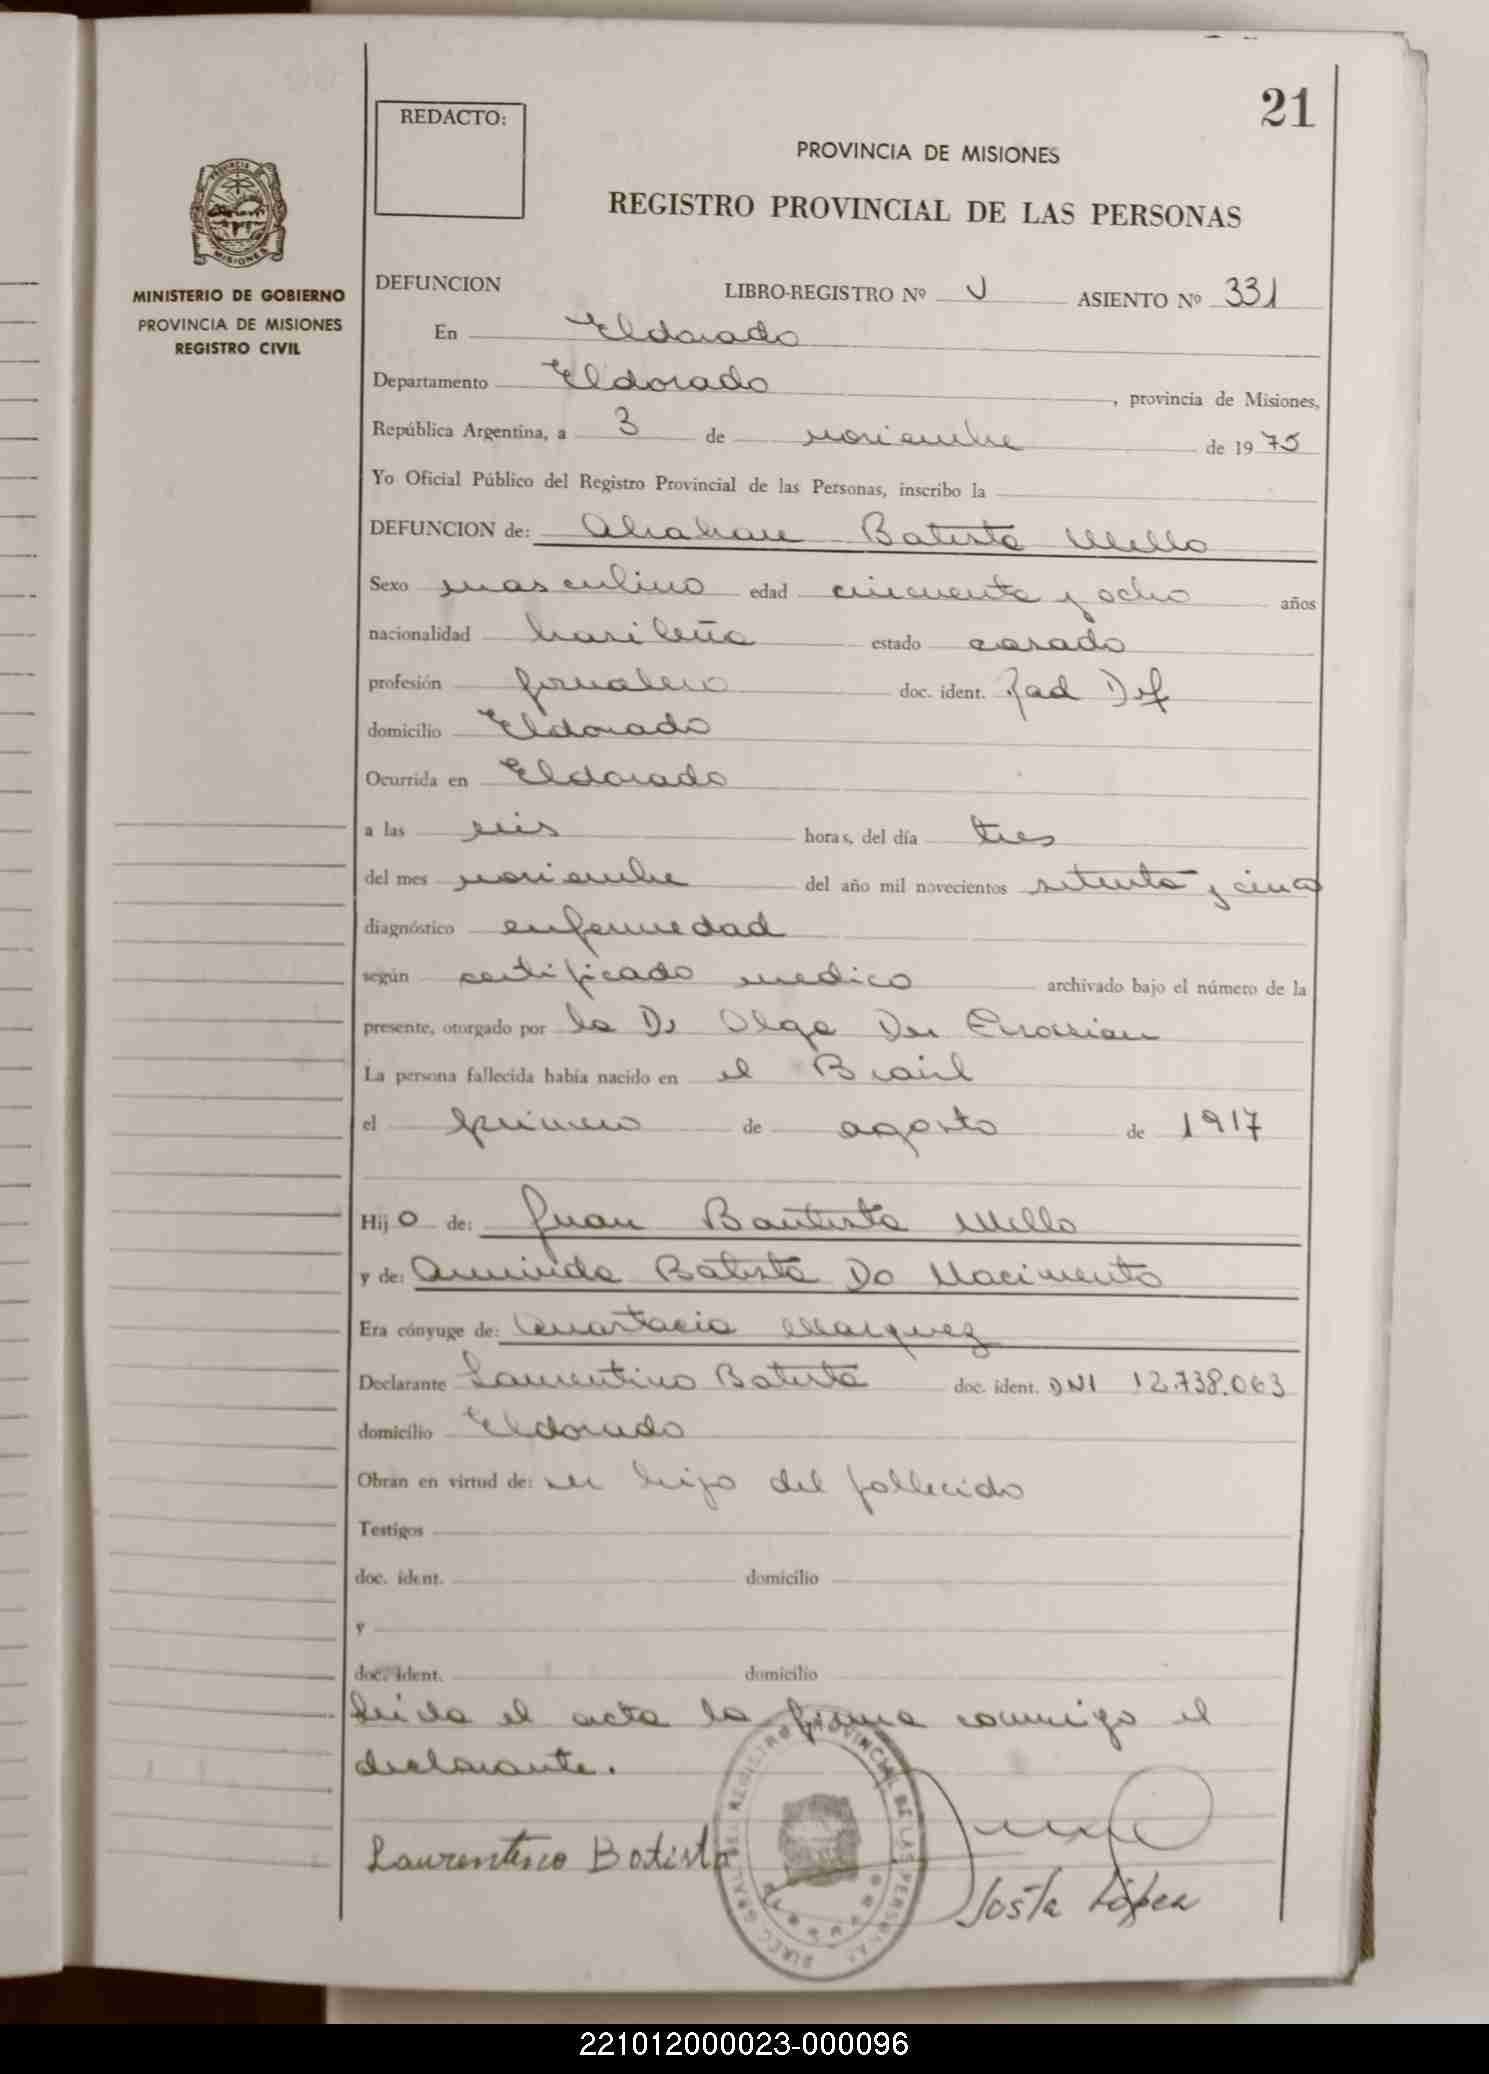 21
REDACTO:
PROVINCIA DE MISIONES
REGISTRO PROVINCIAL DE LAS PERSONAS
MINISTERIO DE GOBIERNO
PROVINCIA DE MISIONES
REGISTRO CIVIL
DEFUNCION LIBRO-REGISTRO Nº V ASIENTO Nº 331
En Eldorado
Departamento Eldorado, provincia de Misiones,
República Argentina, a 3 de noviembre de 1975
Yo Oficial Público del Registro Provincial de las Personas, inscribo la
DEFUNCION de: Abrahan Batista Mello
Sexo masculino edad cincuenta y ocho años
nacionalidad brasileña estado casado
profesión jornalero doc. ident. Rad Def
domicilio Eldorado
Ocurrida en Eldorado
a las seis horas, del día tres
del mes noviembre del año mil novecientos setenta y cinco
diagnóstico enfermedad
según certificado medico archivado bajo el número de la
presente, otorgado por la Dr Olga Der
La persona fallecida había nacido en el Brasil
el primero de agosto de 1917
Hijo de: Juan Bautista Mello
y de: Arminda Batista Do Nacimento
Era cónyuge de: Anastacia Marquez
Declarante Laurentino Batista doc. ident. DNI 12.738.063
domicilio Eldorado
Obran en virtud de: ser hijo del fallecido
Testigos
doc. ident. domicilio
y
doc. ident. domicilio
leida el acta la firma conmigo el
declarante.
Laurentino Batista
DIREC. GRAL. DEL REGISTRO PROVINCIAL DE LAS PERSONAS
221012000023-000096